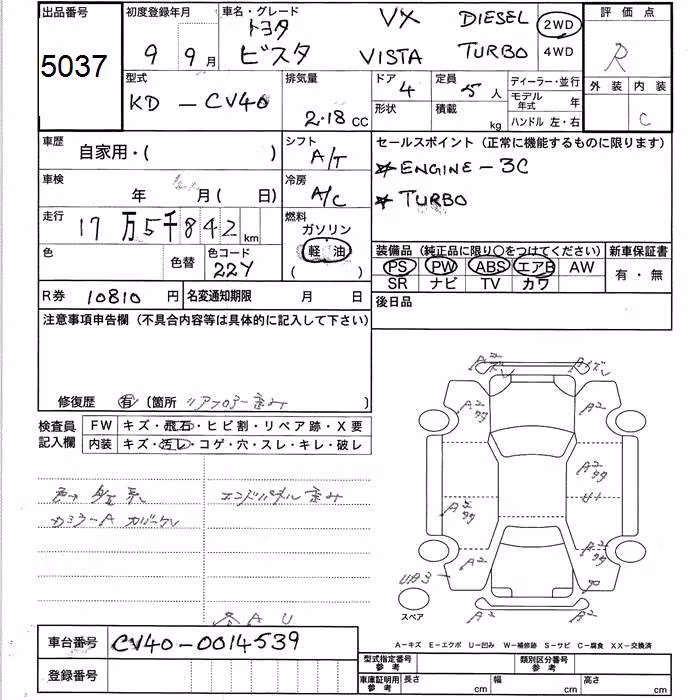 出品番号
5037
初度登録年月
9 9月
車名・グレード
トヨタ VX DIESEL 2WD
ビスタ VISTA TURBO 4WD
評価点
R
外装 内装
C
型式
KD-CV40
排気量
2.18cc
ドア
4
定員
5人
形状
積載
kg
ディーラー・並行
モデル年式 年
ハンドル 左・右
車歴
自家用・( )
シフト
A/T
セールスポイント（正常に機能するものに限ります）
☆ENGINE-3C
☆TURBO
車検
年 月( 日)
冷房
A/C
走行
17万5千842km
燃料
ガソリン
軽油
( )
色
色替
色コード
22Y
装備品（純正品に限り○をつけてください）
PS PW ABS エアB AW
SR ナビ TV カワ
新車保証書
有・無
R券 10810円
名変通知期限 月 日
後日品
注意事項申告欄（不具合内容等は具体的に記入して下さい）
修復歴 有 (箇所 リアフロアー歪み )
検査員記入欄
FW キズ・飛石・ヒビ割・リペア跡・X要
内装 キズ・汚レ・コゲ・穴・スレ・キレ・破レ
エンドパネル歪み
A2
A2
A2
A2
A2
A2
A2
UA3
A2
A2
スペア
各AU
A-キズ E-エクボ U-凹み W-補修跡 S-サビ C-腐食 XX-交換済
車台番号 CV40-0014539
登録番号
型式指定番号参考
類別区分番号参考
車庫証明用参考 長さ cm 幅 cm 高さ cm